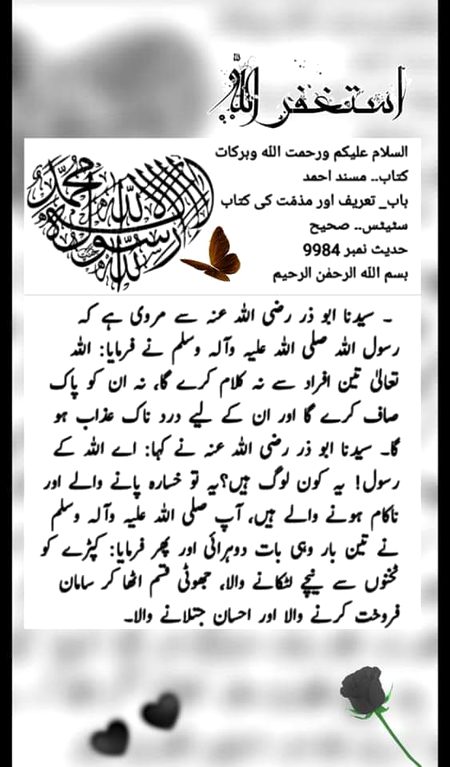 استغفر اللہ
السلام علیکم ورحمت اللہ وبرکات
کتاب.. مسند احمد
باب_ تعریف اور مذمّت کی کتاب
سٹیٹس.. صحیح
حدیث نمبر 9984
بسم الله الرحمٰن الرحيم
۔ سیدنا ابو ذر رضی اللہ عنہ سے مروی ہے کہ
رسول اللہ صلی اللہ علیہ وآلہ وسلم نے فرمایا: اللہ
تعالیٰ تین افراد سے نہ کلام کرے گا، نہ ان کو پاک
صاف کرے گا اور ان کے لیے درد ناک عذاب ہو
گا۔ سیدنا ابو ذر رضی اللہ عنہ نے کہا: اے اللہ کے
رسول! یہ کون لوگ ہیں؟یہ تو خسارہ پانے والے اور
ناکام ہونے والے ہیں، آپ صلی اللہ علیہ وآلہ وسلم
نے تین بار وہی بات دوہرائی اور پھر فرمایا: کپڑے کو
ٹخنوں سے نیچے لٹکانے والا، جھوٹی قسم اٹھا کر سامان
فروخت کرنے والا اور احسان جتلانے والا۔
لا اله الا الله محمد رسول الله